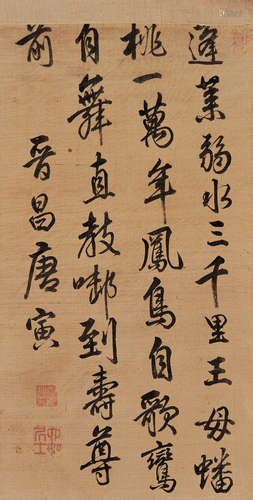 蓬莱弱水三千里王母蟠
桃一萬年鳳鳥自歌鸞
自舞直教啣到壽尊
前
晉昌唐寅